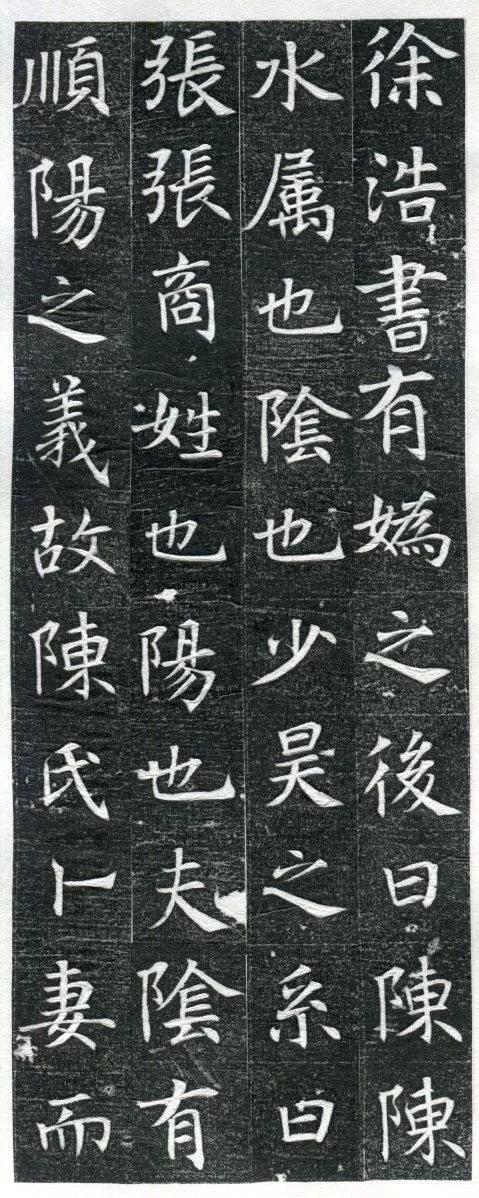 徐浩書有媯之後曰陳陳
水属也陰也少昊之系曰
張張商姓也陽也夫陰有
順陽之義故陳氏卜妻而